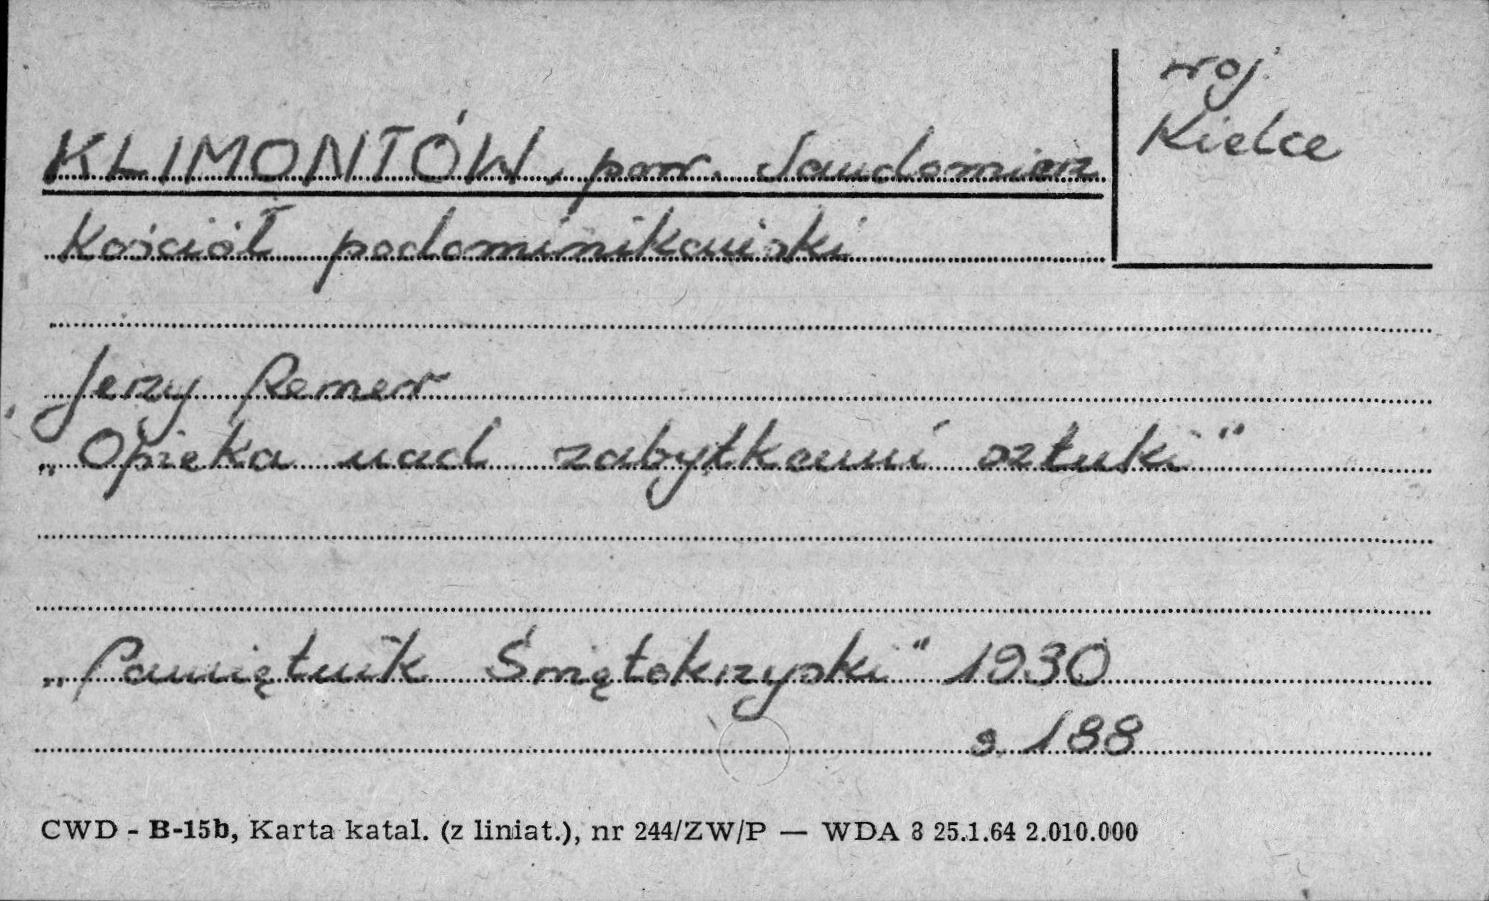 woj.
Kielce
KLIMONTÓW, pow. Sandomierz
Kościół podominikański
Jerzy Remer
„Opieka nad zabytkami sztuki"
„Pamiętnik Świętokrzyski" 1930
s. 188
CWD - B-15b, Karta katal. (z liniat.), nr 244/ZW/P — WDA 3 25.1.64 2.010.000